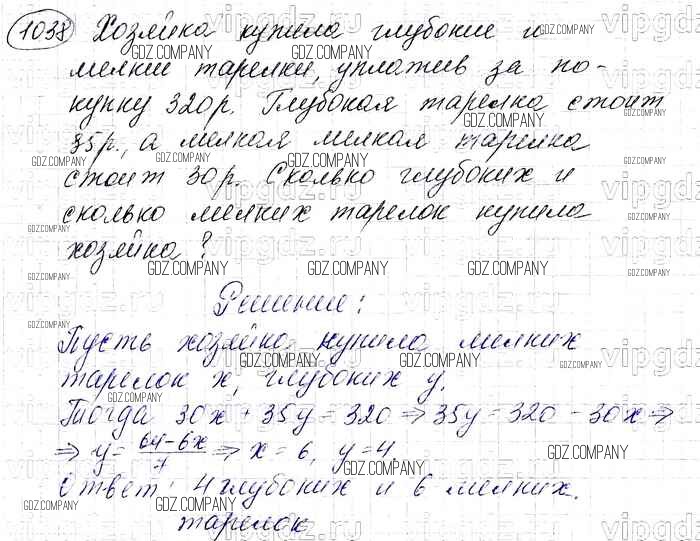 1038 Хозяйка купила глубокие и
мелкие тарелки, уплатив за по-
купку 320р. Глубокая тарелка стоит
35р., а мелкая мелкая тарелка
стоит 30р. Сколько глубоких и
сколько мелких тарелок купила
хозяйка?
Решение:
Пусть хозяйка купила мелких
тарелок x, глубоких y.
Тогда 30x + 35y = 320 ⇒ 35y = 320 - 30x ⇒
⇒ y = (64-6x)/7 ⇒ x = 6, y = 4.
Ответ: 4 глубоких и 6 мелких.
тарелок